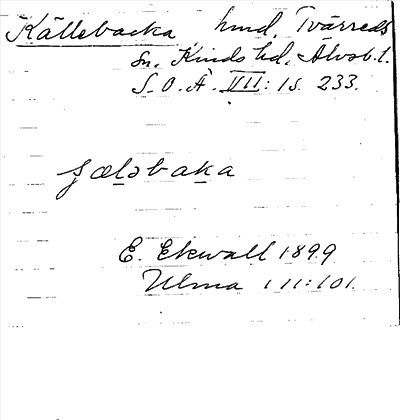 Källebacka hmd. Tvärreds
sn. Kinds hd. Älvsb. l.
S.O.Ä. VII: 1 s. 233.
ʃæləbaka
E. Ekwall 1899
Ulma 111:101.